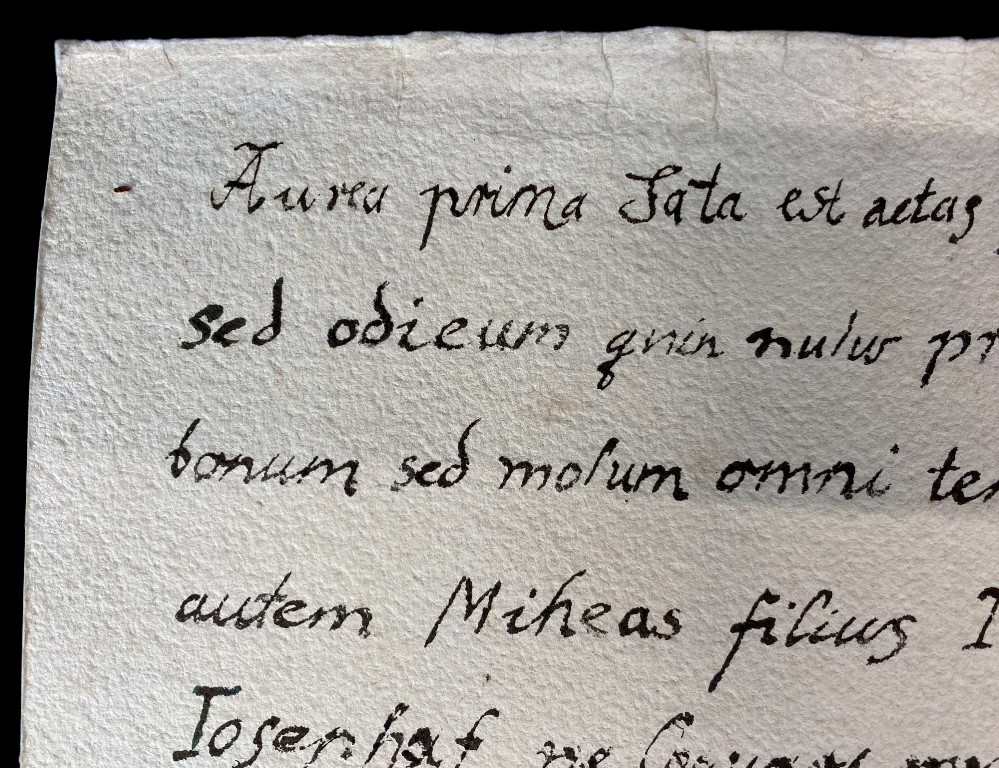 Aurea prima Sata est aetas
sed odieum quin nulus pr
bonum sed molum omni te
autem Miheas filius I
Iosephat ne